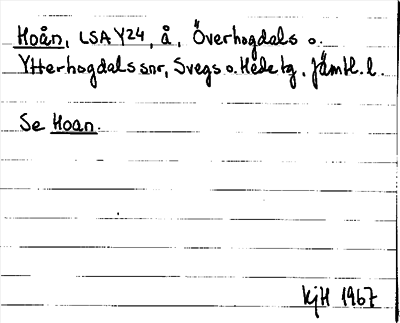 Hoån, LSA Y24, å, Överhogdals o.
Ytterhogdals snr, Svegs o. Hede tg, Jämtl. l.
Se Hoan.
KjH 1967